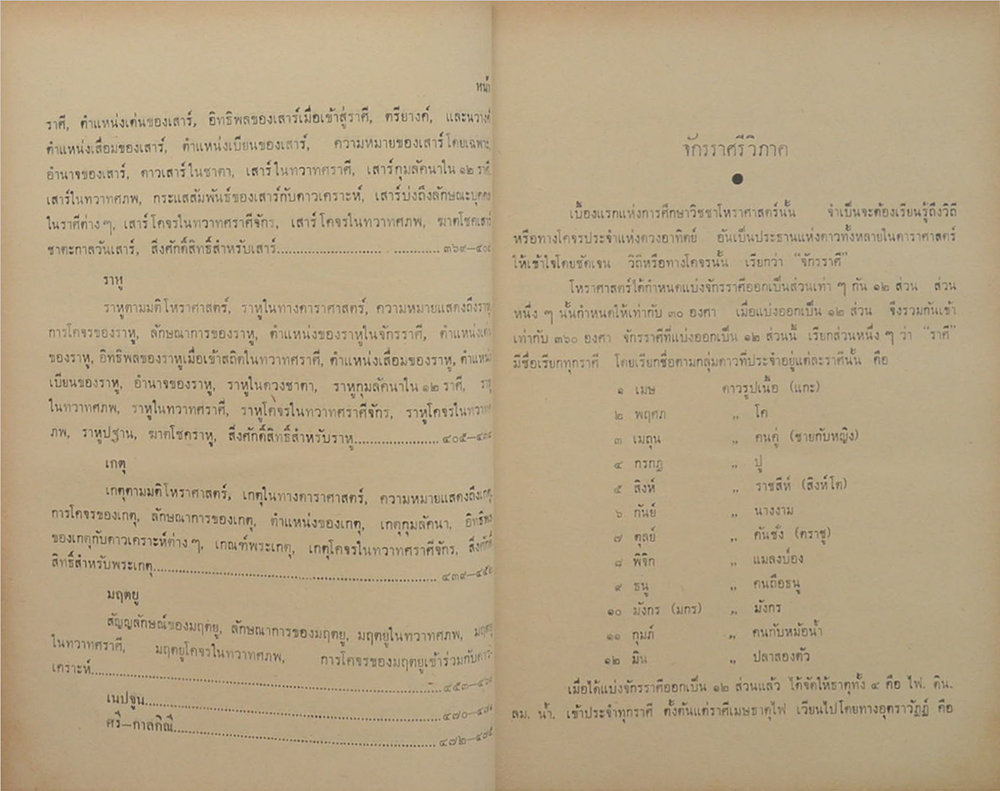 หน้า
ราศี, ตำแหน่งเด่นของเสาร์, อิทธิพลของเสาร์เมื่อเข้าสู่ราศี, ตรียางค์, และนวางศ์
ตำแหน่งเสื่อมของเสาร์, ตำแหน่งเบียนของเสาร์, ความหมายของเสาร์โดยเฉพาะ,
อำนาจของเสาร์, ดาวเสาร์ในชาตา, เสาร์ในทวาทศราศี, เสาร์กุมลัคนาใน ๑๒ ราศี
เสาร์ในทวาทศภพ, กระแสสัมพันธ์ของเสาร์กับดาวเคราะห์, เสาร์บ่งถึงลักษณะบุคคล
ในราศีต่าง ๆ, เสาร์โคจรในทวาทศราศีจักร, เสาร์โคจรในทวาทศภพ, ฆาตโชคเสาร์
ชาตะกาลวันเสาร์, สิ่งศักดิ์สิทธิ์สำหรับเสาร์.............................. ๓๖๙—๔๐๔
ราหู
ราหูตามมติโหราศาสตร์, ราหูในทางดาราศาสตร์, ความหมายแสดงถึงราหู
การโคจรของราหู, ลักษณาการของราหู, ตำแหน่งของราหูในจักรราศี, ตำแหน่งเด่น
ของราหู, อิทธิพลของราหูเมื่อเข้าสถิตในทวาทศราศี, ตำแหน่งเสื่อมของราหู, ตำแหน่ง
เบียนของราหู, อำนาจของราหู, ราหูในดวงชาตา, ราหูกุมลัคนาใน ๑๒ ราศี, ราหู
ในทวาทศภพ, ราหูในทวาทศราศี, ราหูโคจรในทวาทศราศีจักร, ราหูโคจรในทวาทศ
ภพ, ราหูปฐาน, ฆาตโชคราหู, สิ่งศักดิ์สิทธิ์สำหรับราหู.................... ๔๐๕—๔๓๘
เกตุ
เกตุตามมติโหราศาสตร์, เกตุในทางดาราศาสตร์, ความหมายแสดงถึงเกตุ,
การโคจรของเกตุ, ลักษณาการของเกตุ, ตำแหน่งของเกตุ, เกตุกุมลัคนา, อิทธิพล
ของเกตุกับดาวเคราะห์ต่าง ๆ, เกณฑ์พระเกตุ, เกตุโคจรในทวาทศราศีจักร, สิ่งศักดิ์
สิทธิ์สำหรับพระเกตุ............................................................ ๔๓๙—๔๕๒
มฤตยู
สัญญลักษณ์ของมฤตยู, ลักษณาการของมฤตยู, มฤตยูในทวาทศภพ, มฤตยู
ในทวาทศราศี, มฤตยูโคจรในทวาทศภพ, การโคจรของมฤตยูเข้าร่วมกับดาว
เคราะห์.................................................................. ๔๕๓—๔๖๙
เนปจูน.................................................................. ๔๗๐—๔๗๑
ศรี—กาลกิณี.......................................................... ๔๗๒—๔๗๕
จักรราศรีวิภาค
●
เบื้องแรกแห่งการศึกษาวิชชาโหราศาสตร์นั้น จำเป็นจะต้องเรียนรู้ถึงวิถี
หรือทางโคจรประจำแห่งดวงอาทิตย์ อันเป็นประธานแห่งดาวทั้งหลายในดาราศาสตร์
ให้เข้าใจโดยชัดเจน วิถีหรือทางโคจรนั้น เรียกว่า "จักรราศี"
โหราศาสตร์ได้กำหนดแบ่งจักรราศีออกเป็นส่วนเท่า ๆ กัน ๑๒ ส่วน ส่วน
หนึ่ง ๆ นั้นกำหนดให้เท่ากับ ๓๐ องศา เมื่อแบ่งออกเป็น ๑๒ ส่วน จึงรวมกันเข้า
เท่ากับ ๓๖๐ องศา จักรราศีที่แบ่งออกเป็น ๑๒ ส่วนนี้ เรียกส่วนหนึ่ง ๆ ว่า "ราศี"
มีชื่อเรียกทุกราศี โดยเรียกชื่อตามกลุ่มดาวที่ประจำอยู่แต่ละราศีนั้น คือ
๑ เมษ ดาวรูปเนื้อ (แกะ)
๒ พฤศภ ,, โค
๓ เมถุน ,, คนคู่ (ชายกับหญิง)
๔ กรกฎ ,, ปู
๕ สิงห์ ,, ราชสีห์ (สิงห์โต)
๖ กันย์ ,, นางงาม
๗ ตุลย์ ,, คันชั่ง (ตราชู)
๘ พิจิก ,, แมลงป่อง
๙ ธนู ,, คนถือธนู
๑๐ มังกร (มกร) ,, มังกร
๑๑ กุมภ์ ,, คนกับหม้อน้ำ
๑๒ มิน ,, ปลาสองตัว
เมื่อได้แบ่งจักรราศีออกเป็น ๑๒ ส่วนแล้ว ได้จัดให้ธาตุทั้ง ๔ คือ ไฟ. ดิน.
ลม. น้ำ. เข้าประจำทุกราศี ตั้งต้นแต่ราศีเมษธาตุไฟ เวียนไปโดยทางอุตราวัฏฏ์ คือ